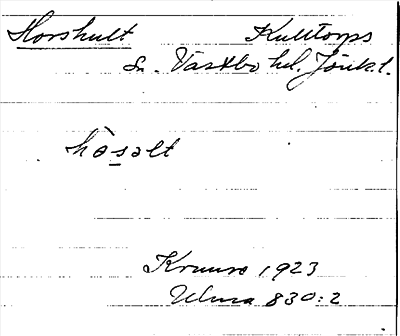 Horshult Kulltorps
sn. Västbo hd. Jönk.l.
hòsəlt
Kruuse 1923
Ulma 830:2